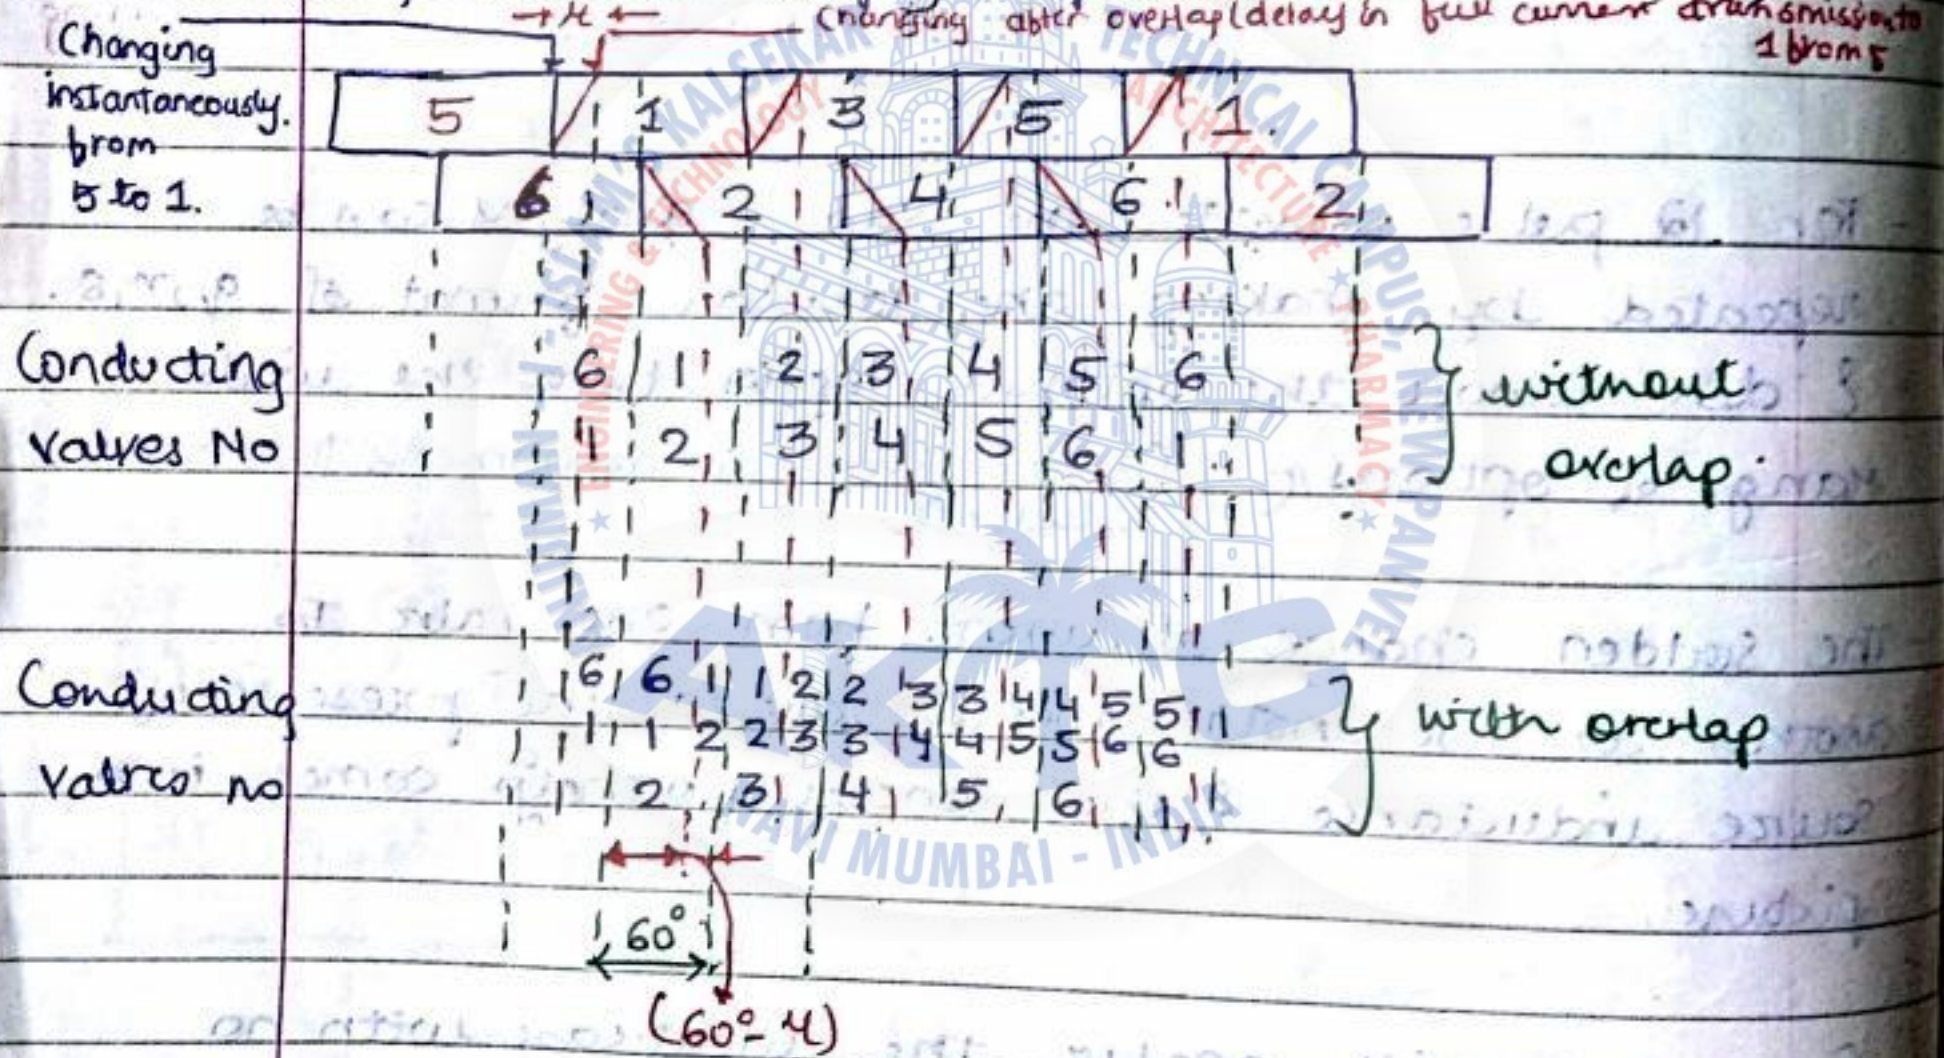 Changing after overlap(delay in full current transmission to
1 from 5
→ μ ←
Changing
instantaneously.
from
5 to 1.
5 1 3 5 1.
6 2 4 6 2
Conducting
Valves No
6 1 2 3 4 5 6
1 2 3 4 5 6 1
} without
overlap.
Conducting
Valves no
6 6 1 1 2 2 3 3 4 4 5 5
1 1 2 2 3 3 4 4 5 5 6 6
2 3 4 5 6 1
} with overlap
60°
(60°-μ)
ANJUMAN-I-ISLAM'S KALSEKAR TECHNICAL CAMPUS, NEW PANVEL
ENGINEERING & TECHNOLOGY ★ ARCHITECTURE ★ PHARMACY ★
AIKTC
NAVI MUMBAI - INDIA